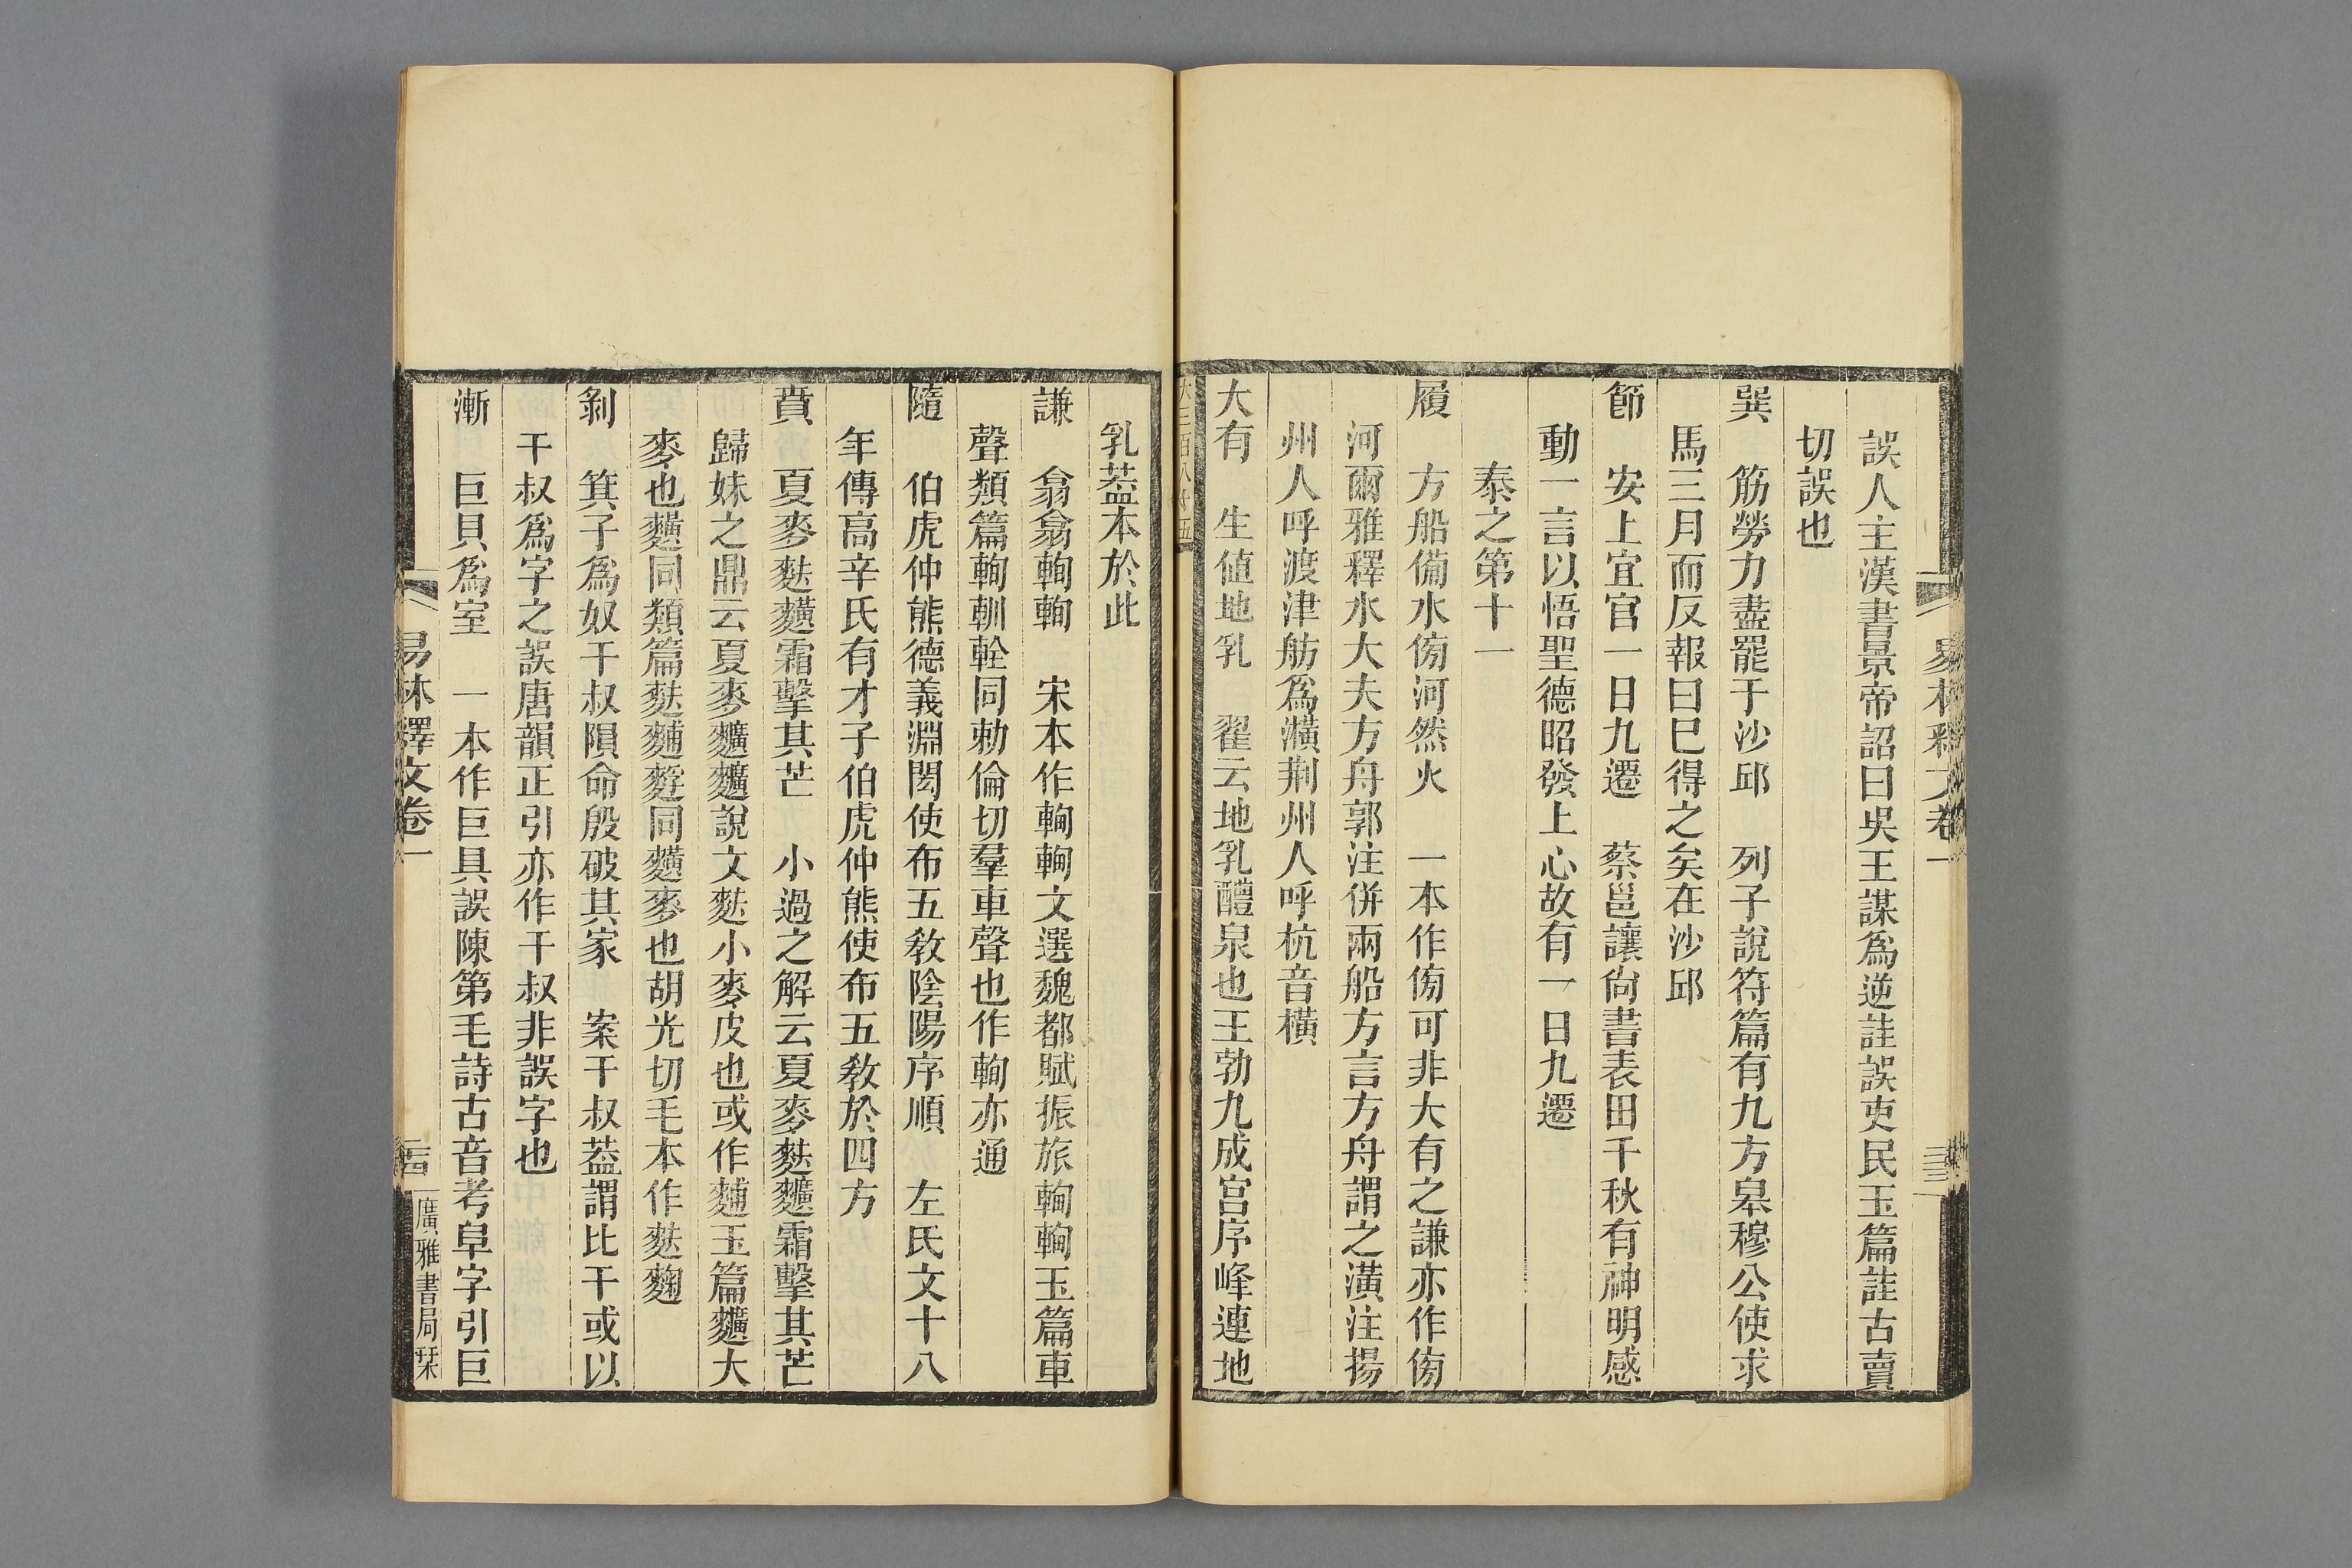 易林釋文卷一
誤人主漢書景帝詔曰吳王謀爲逆詿誤吏民玉篇詿古賣
切誤也
巽　筋勞力盡罷于沙邱　列子說符篇有九方皋穆公使求
馬三月而反報曰巳得之矣在沙邱
節　安上宜官一日九遷　蔡邕讓尙書表田千秋有神明感
動一言以悟聖德昭發上心故有一日九遷
泰之第十一
履　方船備水傍河然火　一本作傍可非大有之謙亦作傍
河爾雅釋水大夫方舟郭注併兩船方言方舟謂之潢注揚
州人呼渡津舫爲㶇荆州人呼杭音橫
大有　生値地乳　翟云地乳醴泉也王勃九成宮序峰連地
乳葢本於此
謙　翕翕輷輷　宋本作輷輷文選魏都賦振旅輷輷玉篇車
聲類篇輷䡅軽同勑倫切羣車聲也作輷亦通
隨　伯虎仲熊德義淵閎使布五敎陰陽序順　左氏文十八
年傳高辛氏有才子伯虎仲熊使布五敎於四方
賁　夏麥麩䵃霜擊其芒　小過之解云夏麥麩䵃霜擊其芒
歸妹之鼎云夏麥䵃䵃說文麩小麥皮也或作麱玉篇䵃大
麥也䵃同類篇麩麱同䵃麥也胡光切毛本作麩麴
剝　箕子爲奴干叔隕命殷破其家　案干叔葢謂比干或以
干叔爲字之誤唐韻正引亦作干叔非誤字也
漸　巨貝爲室　一本作巨具誤陳第毛詩古音考阜字引巨
易林釋文卷一
廣雅書局栞